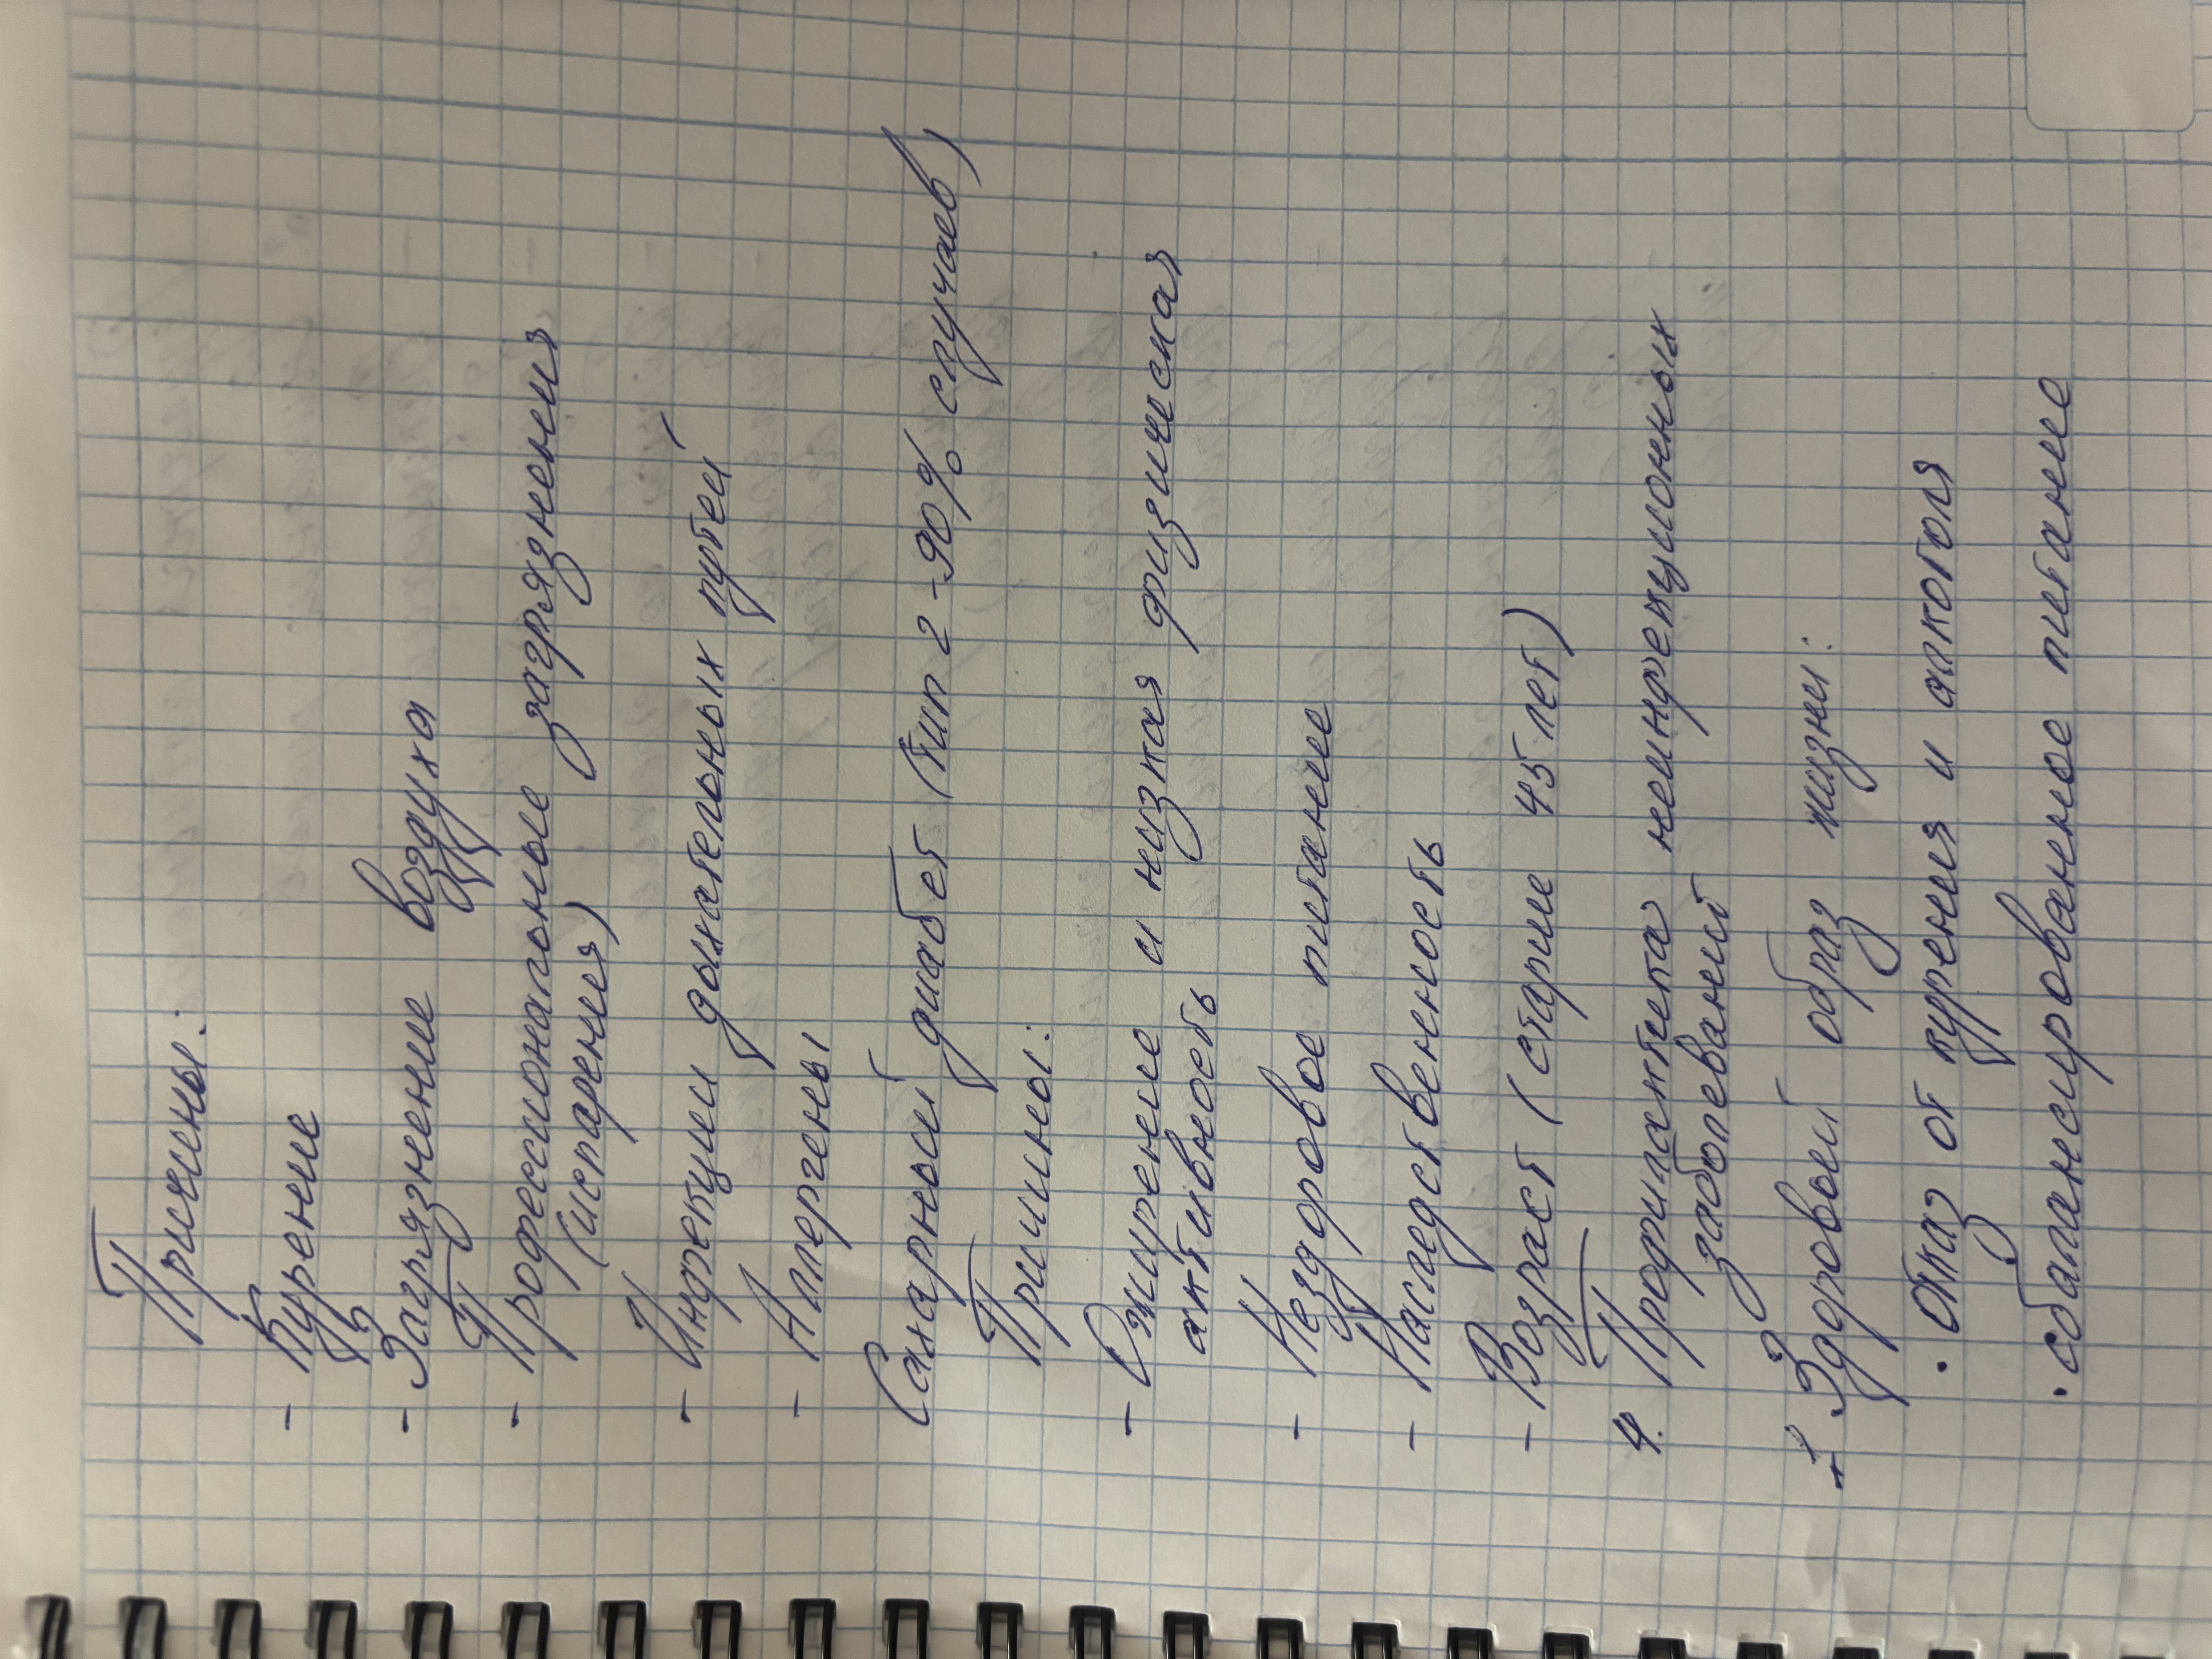 Причины:
- Курение
- Загрязнение воздуха
- Профессиональные загрязнения
(испарения)
- Инфекции дыхательных путей
- Аллергены
Сахарный диабет (тип 2 - 90% случаев)
Причины:
- Ожирение и низкая физическая
активность
- Нездоровое питание
- Наследственность
- Возраст (старше 45 лет)
4. Профилактика неинфекционных
заболеваний
1. Здоровый образ жизни:
· отказ от курения и алкоголя
· сбалансированное питание